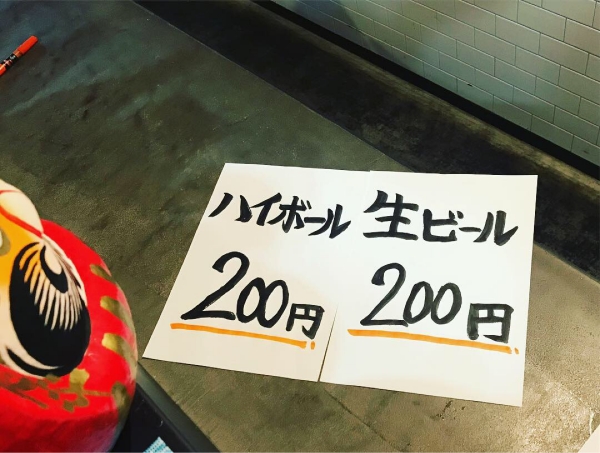 ハイボール
200円
生ビール
200円